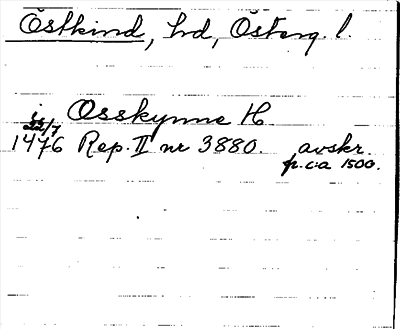 Östkind, hd, Österg. l.
i Osskynne H
1476 Rep. II nr 3880. avskr.
p. c:a 1500.